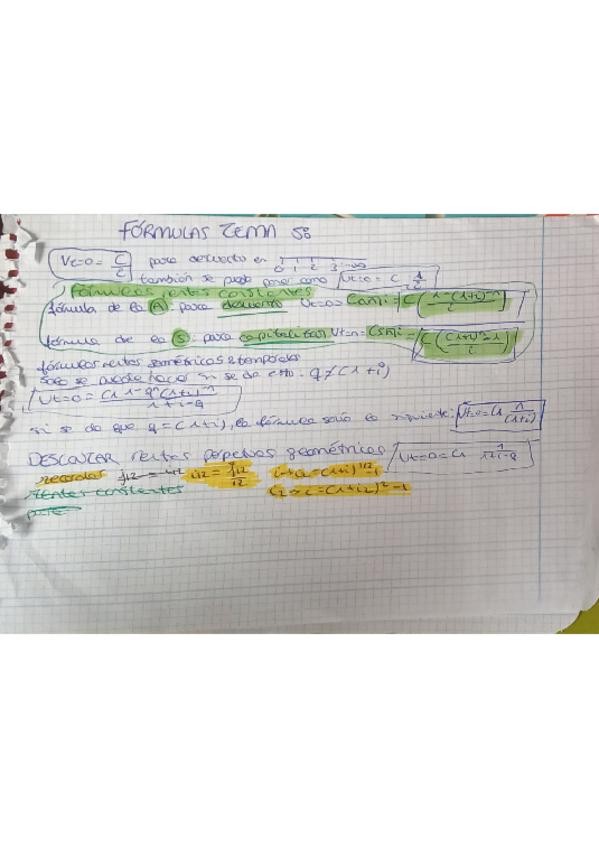 FÓRMULAS TEMA 5:
Vt=0 = C/i para descuento en 0 1 2 3 ... ∞
también se puede poner como Vt=0 = C 1/i
fórmulas rentas constantes
fórmula de la A: para descuento Vt=0 = C an]i = C (1-(1+i)^-n / i)
fórmula de la S: para capitalizar Vt=n = C sn]i = C ((1+i)^n-1 / i)
fórmulas rentas geométricas temporales
Solo se puede hacer si se da esto: q ≠ (1+i)
Vt=0 = C1 1-q^n(1+i)^-n / 1+i-q
si se da que q=(1+i), la fórmula sería la siguiente: Vt=0 = C1 n/(1+i)
DESCONTAR rentas perpetuas geométricas Vt=0 = C1 1/1+i-q
recordar i12 = J12/12 (1+i)^1/12 -1
rentas constantes i2→i=(1+i2)^2-1